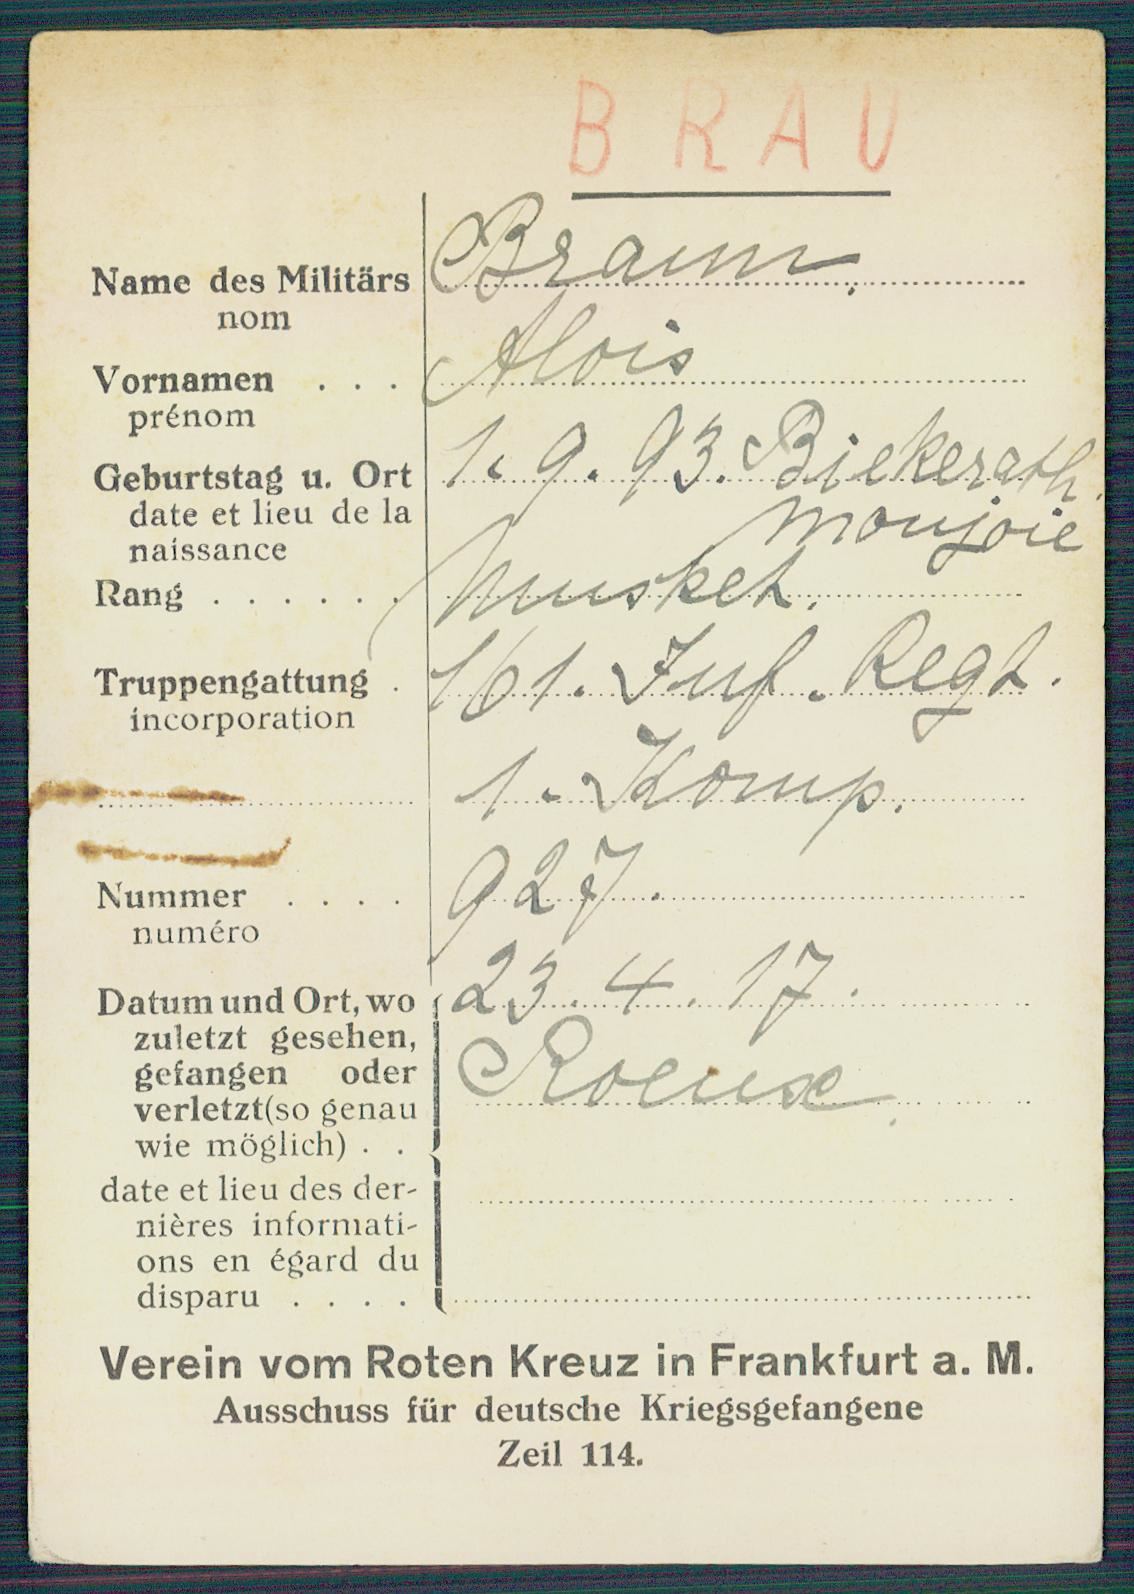 BRAU
Name des Militärs Braun.
nom
Vornamen . . . Alois
prénom
Geburtstag u. Ort 1. 9. 93. Biekerath.
date et lieu de la Monjoie
naissance
Rang . . . . . . Musket.
Truppengattung . 161. Inf. Regt.
incorporation
1. Komp.
Nummer . . . . 927.
numéro
Datum und Ort, wo 23. 4. 17.
zuletzt gesehen,
gefangen oder Roeux.
verletzt (so genau
wie möglich) . .
date et lieu des der-
nières informati-
ons en égard du
disparu . . . .
Verein vom Roten Kreuz in Frankfurt a. M.
Ausschuss für deutsche Kriegsgefangene
Zeil 114.